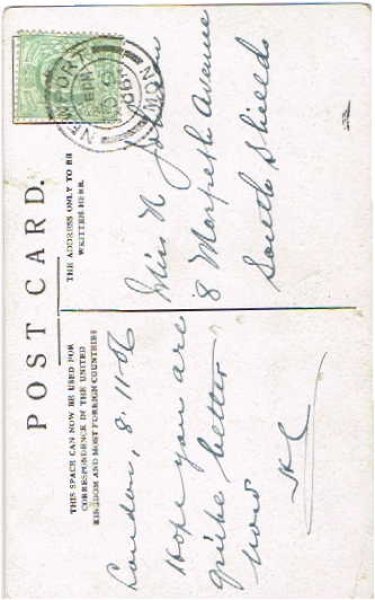 POST CARD.
THIS SPACE CAN NOW BE USED FOR
CORRESPONDENCE IN THE UNITED
KINGDOM AND MOST FOREIGN COUNTRIES
THE ADDRESS ONLY TO BE
WRITTEN HERE.
London, 8.11.06
Hope you are
quite better
now
Miss N
8 Morpeth Avenue
South Shields
NEWPORT
MON